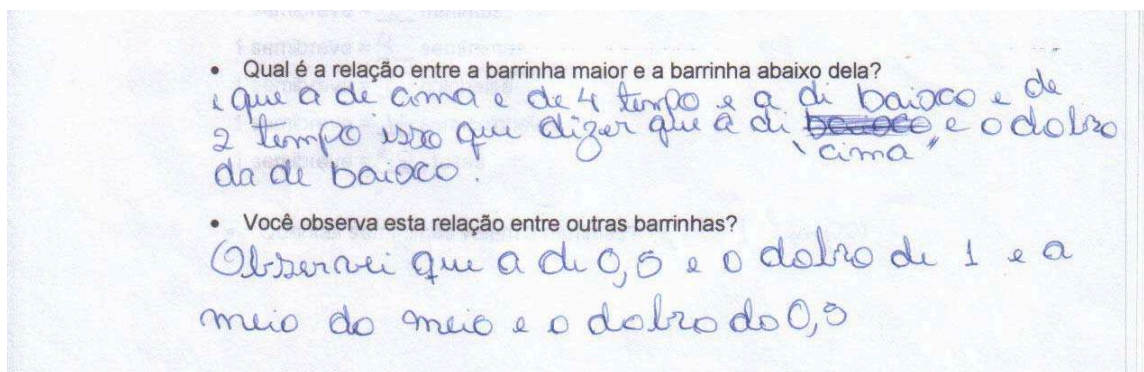 • Qual é a relação entre a barrinha maior e a barrinha abaixo dela?
e que a de cima e de 4 tempo e a di baioco e de
2 tempo isso que dizer que a di baioco e o dolbro
"cima"
da de baioco.
• Você observa esta relação entre outras barrinhas?
Observei que a de 0,5 e o dolbro de 1 e a
meio do meio e o dolbro do 0,5